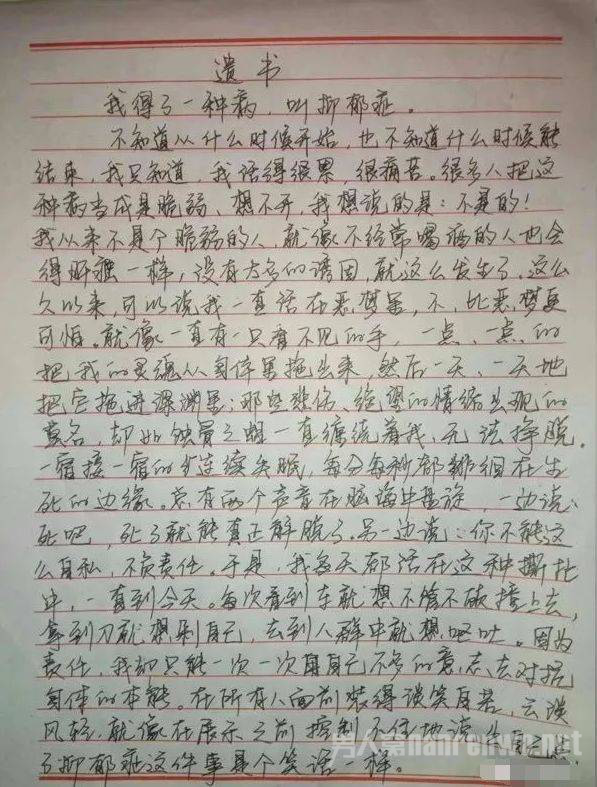 遗书
我得了一种病，叫抑郁症。
不知道从什么时候开始，也不知道什么时候能
结束，我只知道，我活得很累，很痛苦。很多人把这
种病当成是脆弱、想不开，我想说的是：不是的！
我从来不是个脆弱的人，就像不经常喝酒的人也会
得肝癌一样，没有太多的诱因，就这么发生了。这么
久以来，可以说我一直活在恶梦里，不，比恶梦更
可怕。就像一直有一只看不见的手，一点、一点的
把我的灵魂从身体里拖出来，然后一天、一天地
把它拖进深渊里；那些悲伤、绝望的情绪出现的
莫名，却如蚀骨之蛆一直缠绕着我，无法挣脱。
一宿接一宿的连续失眠，每分每秒都徘徊在生
死的边缘。总有两个声音在脑海中盘旋，一边说：
死吧，死了就能真正解脱了。另一边说：你不能这
么自私，不负责任。于是，我每天都活在这种撕扯
中，一直到今天。每次看到车就想不管不顾撞上去，
拿到刀就想剁自己，去到人群中就想呕吐。因为
责任，我却只能一次一次用自己不多的意志去对抗
身体的本能。在所有人面前装得谈笑自若、云淡
风轻，就像在展示之前控制不住地说出自己
了抑郁症这件事是个笑话一样。
nanrenwo.net